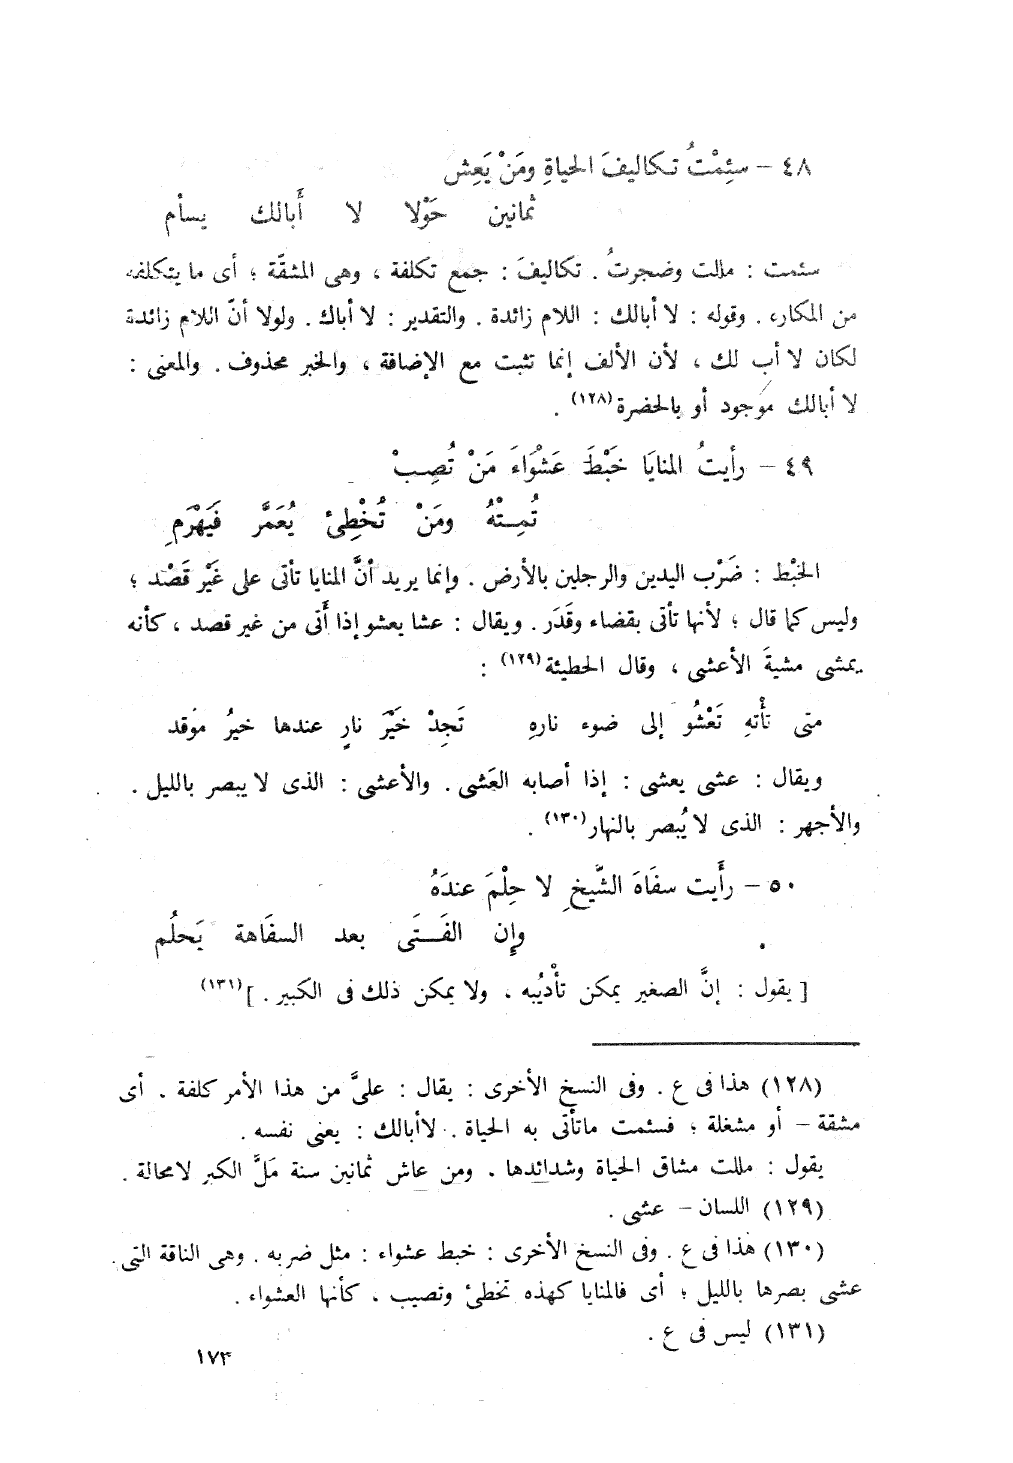 ٤٨ – سئِمْتُ تكاليفَ الحياةِ ومَنْ يَعِش
ثمانين حَوْلا لا أَبالك يسأم
سئمت : مللت وضجرتُ . تكاليفَ : جمع تكلفة ، وهى المشقّة ؛ أى ما يتكلفه
من المكاره . وقوله : لا أبالك : اللام زائدة . والتقدير : لا أباك . ولولا أنّ اللام زائدة
لكان لا أب لك ، لأن الألف إنما تثبت مع الإضافة ، والخبر محذوف . والمعنى :
لا أبالك موجود أو بالحضرة(١٢٨) .
٤٩ – رأيتُ المنايَا خَبْطَ عَشْوَاءَ مَنْ تُصِبْ
تُمِتْهُ ومَنْ تُخْطِئ يُعَمَّر فَيَهْرَمِ
الخبْط : ضَرْب اليدين والرجلين بالأرض . وإنما يريد أنَّ المنايا تأتى على غَيْر قَصْد ؛
وليس كما قال ؛ لأنها تأتى بقضاء وقَدَر . ويقال : عشا يعشو إذا أَتى من غير قصد ، كأنه
يمشى مشيةَ الأعشى ، وقال الحطيئة(١٢٩) :
متى تأْتهِ تَعْشُو إلى ضوء نارهِ تَجِدْ خَيْرَ نارٍ عندها خيرُ موقد
ويقال : عشى يعشى : إذا أصابه العَشى . والأعشى : الذى لا يبصر بالليل .
والأجهر : الذى لا يُبصر بالنهار(١٣٠) .
٥٠ – رأَيت سفَاهَ الشَّيخِ لا حِلْمَ عندَهُ
وإِن الفَتَى بعد السفَاهة يَحلُم
[ يقول : إنَّ الصغير يمكن تأْديُبه ، ولا يمكن ذلك فى الكبير . ](١٣١)
(١٢٨) هذا فى ع . وفى النسخ الأخرى : يقال : علىَّ من هذا الأمر كلفة . أى
مشقة – أو مشغلة ؛ فسئمت ماتأتى به الحياة . لاأبالك : يعنى نفسه .
يقول : مللت مشاق الحياة وشدائدها . ومن عاش ثمانين سنة مَلَّ الكبر لامحالة .
(١٢٩) اللسان – عشى .
(١٣٠) هذا فى ع . وفى النسخ الأخرى : خبط عشواء : مثل ضربه . وهى الناقة التى
عشى بصرها بالليل ؛ أى فالمنايا كهذه تخطئ وتصيب ، كأنها العشواء .
(١٣١) ليس فى ع .
١٧٣